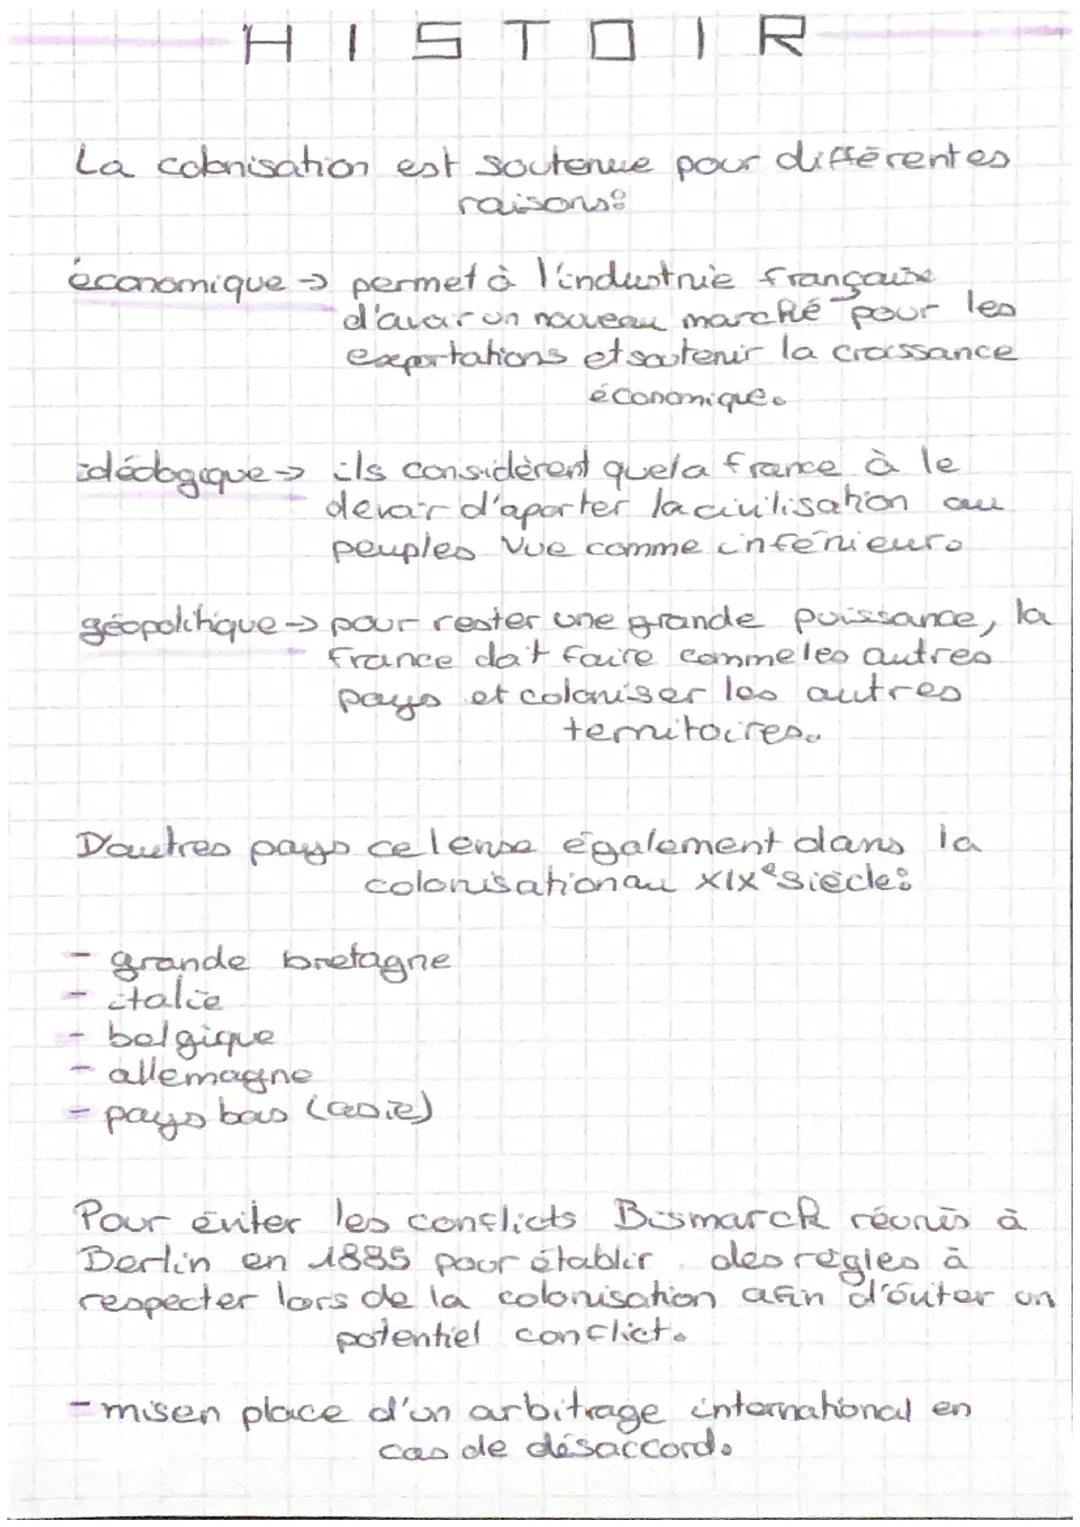 HISTOIR
La colonisation est soutenue pour différentes
raisons:
économique → permet à l'industrie française
d'avoir un nouveau marché pour les
exportations et soutenir la croissance
économique.
idéologique → ils considèrent que la france à le
devoir d'aporter la civilisation au
peuples vue comme inférieur.
géopolitique → pour rester une grande puissance, la
france doit faire comme les autres
pays et coloniser les autres
territoires.
D'autres pays ce lense également dans la
colonisation au XIXe siècle:
- grande bretagne
- italie
- belgique
- allemagne
- pays bas (asie)
Pour éviter les conflicts Bismarck réunis à
Berlin en 1885 pour établir des règles à
respecter lors de la colonisation afin d'éviter un
potentiel conflict.
- mise en place d'un arbitrage international en
cas de désaccord.